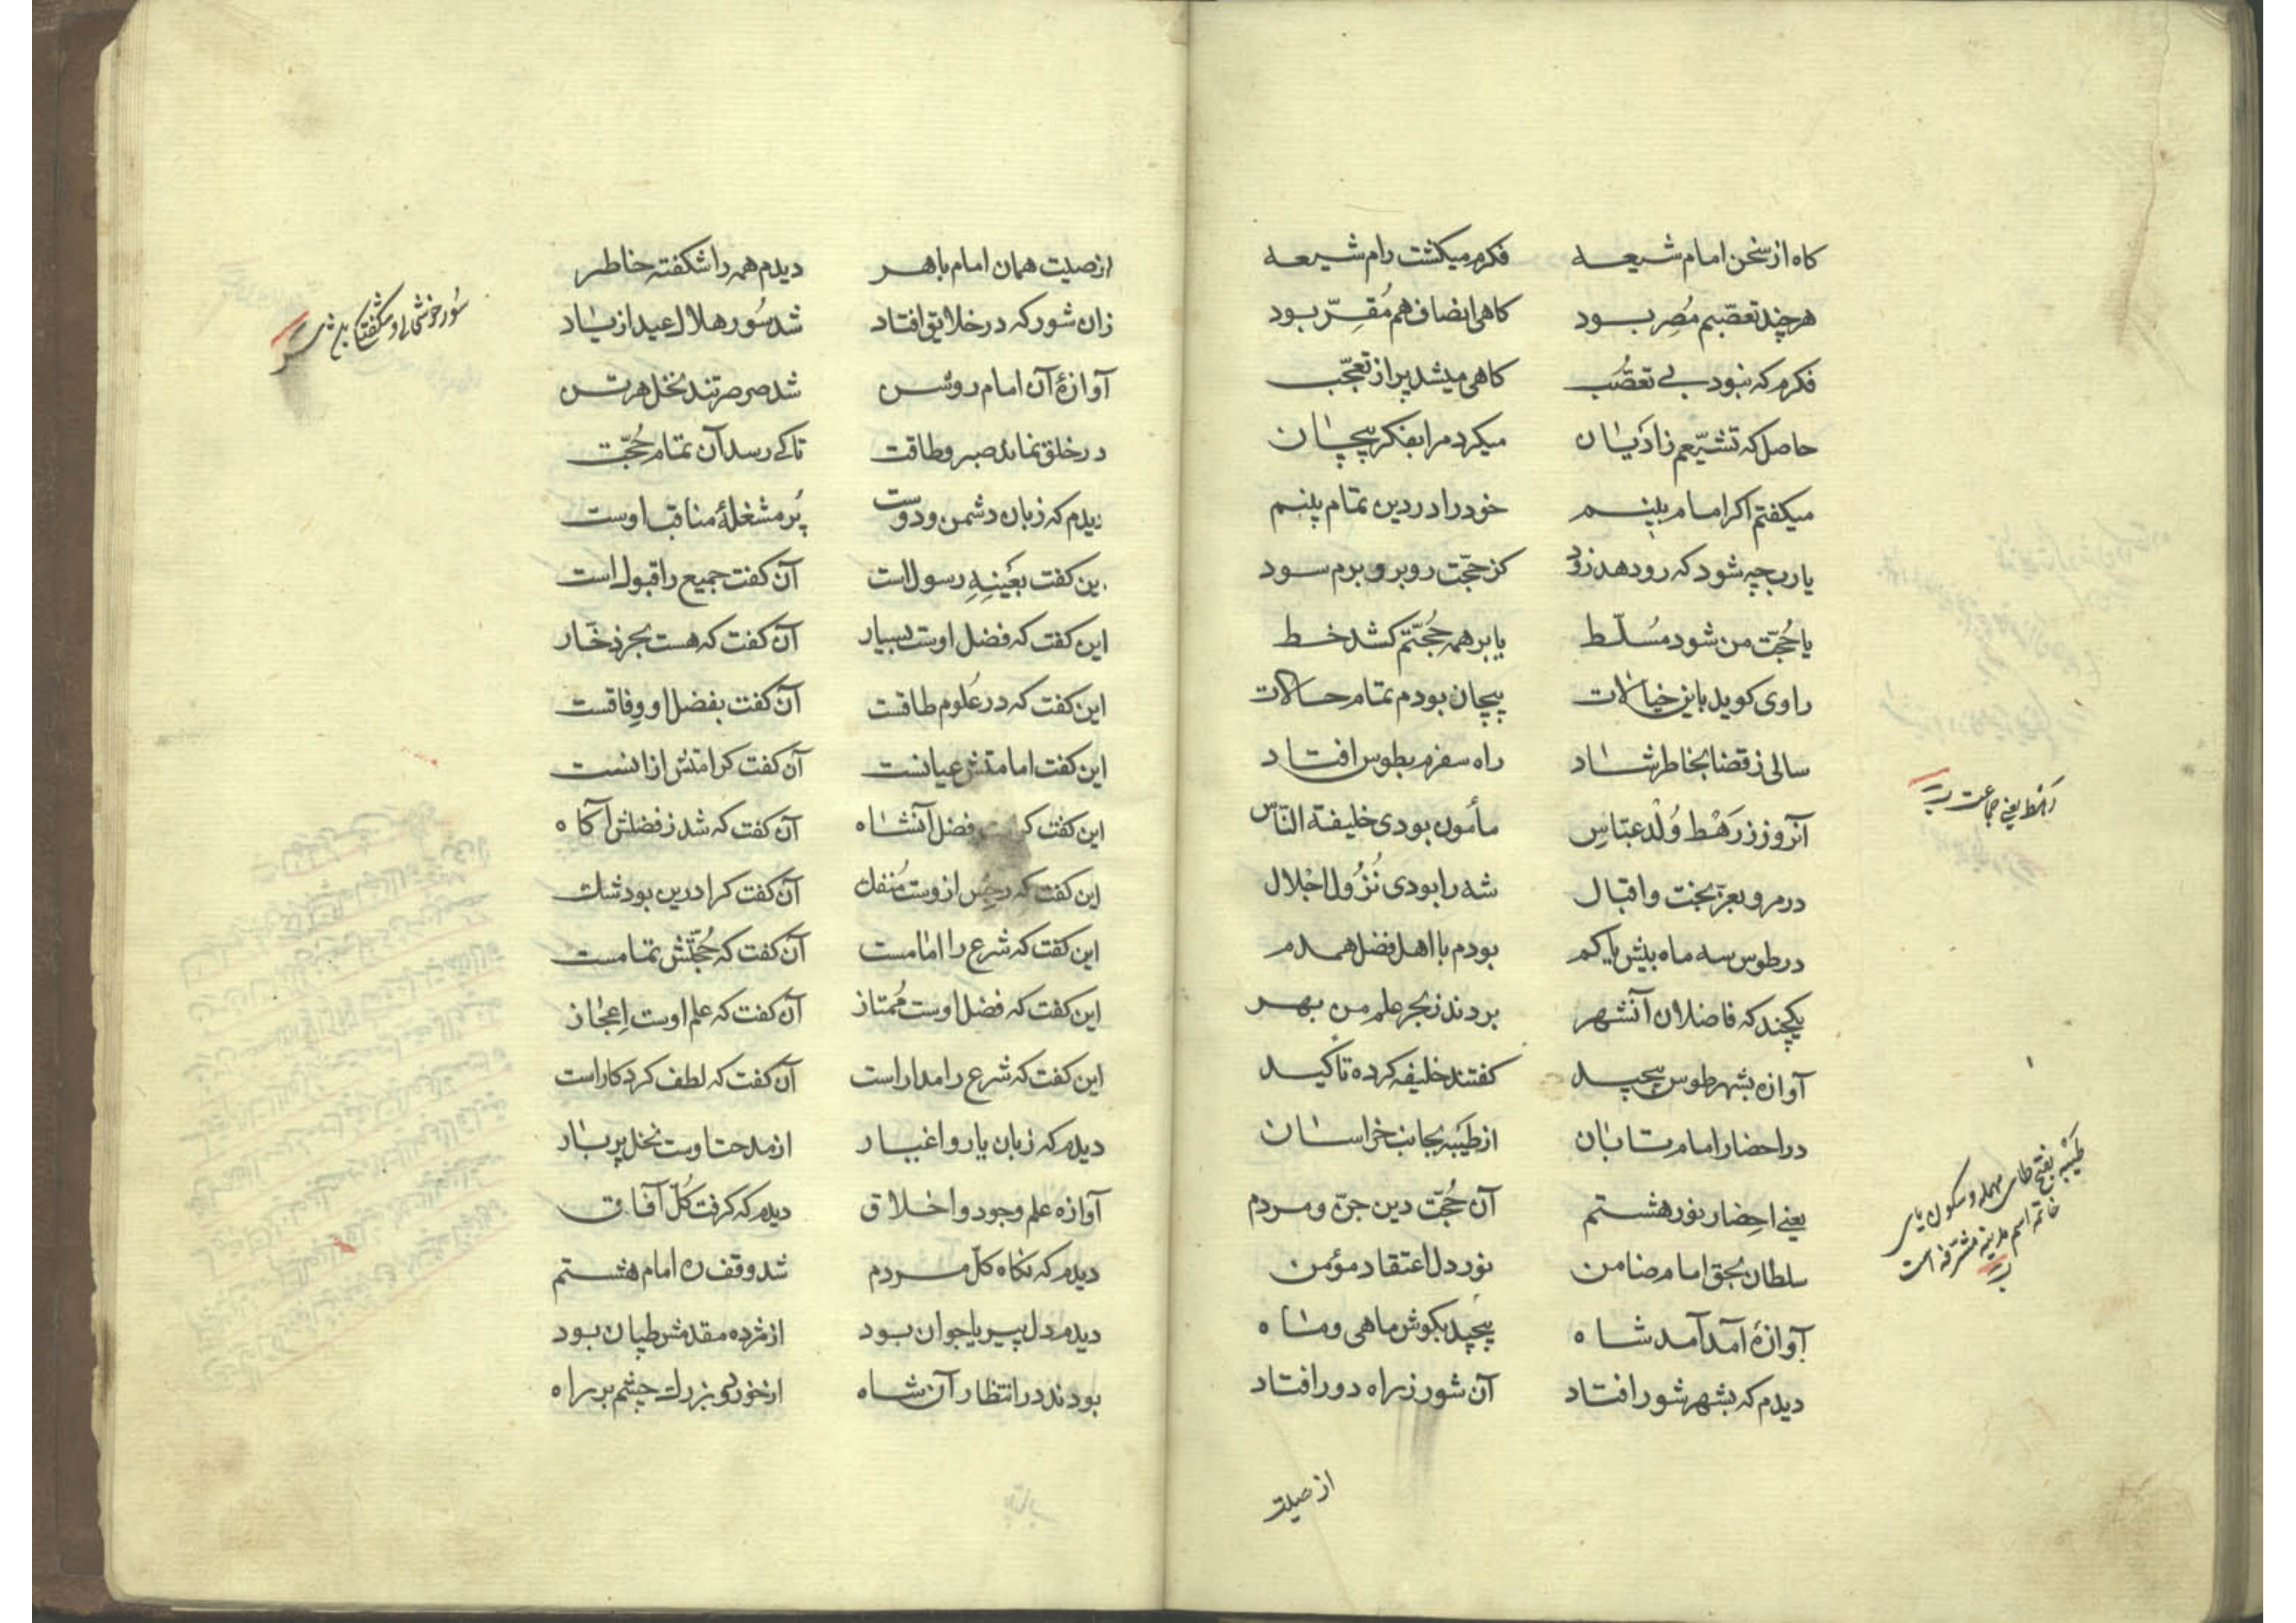 کاه از سخن امام شیعه فکرم میکشت رام شیعه
هرچند تعصّبم مُصِر بود کاهی انصاف هم مُقِرّ بود
فکرم که نبود بی تعصُّب کاهی میشد پر از تعجّب
حاصل که تشیّعم ز ادیان میکرد مرا بفکر پیچان
میکفتم اکر امام بینم خود را در دین تمام بینم
یارب چه شود که رو دهد زود کز حجّت روبرو برم سود
یا حُجّت من شود مُسلّط یا بر همه حُجّتم کشد خط
راوی کوید باین خیالات پیچان بودم تمام حالات
سالی ز قضا بخاطر شاد راه سفرم بطوس افتاد
آنروز ز رَهْط وُلْد عبّاسِ مأمون بودی خلیفة النّاس
در مرو بعزّ بخت و اقبال شه را بودی نُزُول اجلال
در طوس سه ماه بیش یا کم بودم با اهل فضل همدم
یکچند که فاضلان آنشهر بردند ز بحر علم من بهر
آوازه بشهر طوس پیچید کفتند خلیفه کرده تاکید
در احضار امام شتابان از طَیْبه بجانب خراسان
یعنی احِضار نور هشتم آن حُجّت دین جنّ و مردم
سلطان بحق امام ضامن نور دل اعتقاد مؤمن
آوازهٔ آمد آمد شاه پیچید بکوش ماهی و ماه
دیدم که بشهر شور افتاد آن شور ز راه دور افتاد
رهط یعنی جماعت
طَیْبه بفتح طای مهمله و سکون یای
خاتمه اسم مدینه مشرّفه است
از صیت
از صیت همان امام باهر دیدم همه را شکفته خاطر
زان شور که در خلایق افتاد شد سُور هلال عید از یاد
آوازهٔ آن امام روشن شد صرصر تند نخل هر تن
در خلق نماند صبر و طاقت تا کی رسد آن تمام حُجّت
دیدم که زبان دشمن و دوست پُر مشغلهٔ مناقب اوست
این کفت بعَینِهِ رسول است آن کفت جمیع را قبول است
این کفت که فضل اوست بسیار آن کفت که هست بحر ذخّار
این کفت که در عُلوم طاقست آن کفت بفضل او وِفاقست
این کفت امامتش عیانست آن کفت کرامتش ازانست
این کفت فضل آنشاه آن کفت که شد ز فضلش آکاه
این کفت که رجس ازوست مُنفک آن کفت کرا درین بود شک
این کفت که شرع را امامست آن کفت که حُجّتش تمامست
این کفت که فضل اوست مُمتاز آن کفت که علم اوست اِعجاز
این کفت که شرع را مدار است آن کفت که لطف کردکار است
دیدم که زبان یار و اغیار از مدحت اوست نخل پر بار
آوازه علم و جود و اخلاق دیدم که کرفت کُلّ آفاق
دیدم که نکاه کلّ مردم شد وقف ره امام هشتم
دیدم دل پیر یا جوان بود از مژده مقدمش طپان بود
بودند در انتظار آن شاه از خورد و بزرک چشم بر راه
سُور خوشحالی و